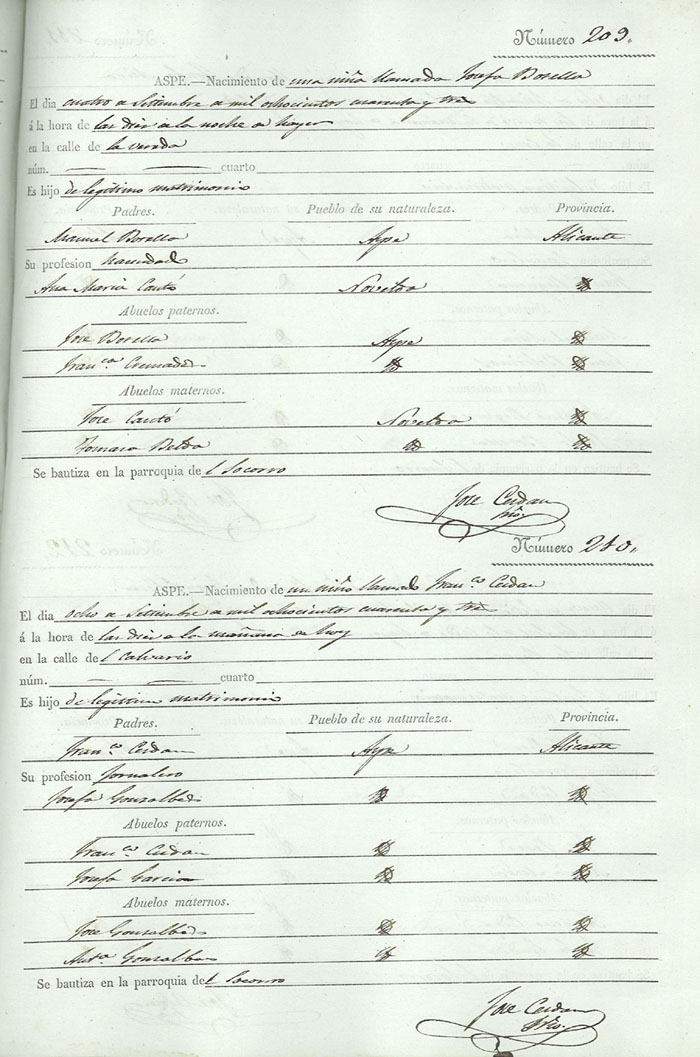 Número 209.
ASPE.—Nacimiento de una niña llamada Josefa Borella
El dia cuatro de Setiembre de mil ochocientos cuarenta y tres
á la hora de las diez de la noche de hayer
en la calle de la vereda
núm. — — cuarto
Es hijo de legitimo matrimonio
Padres. Pueblo de su naturaleza. Provincia.
Manuel Borella Aspe Alicante
Su profesion hacendado
Ana Maria Cantó Novelda
Abuelos paternos.
Jose Borella Aspe
Fran.ca Cremades
Abuelos maternos.
Jose Cantó Novelda
Tomasa Belda
Se bautiza en la parroquia del Socorro
Jose Cerdan
Srio.
Número 210.
ASPE.—Nacimiento de un niño llamado Fran.co Cerdan
El dia ocho de Setiembre de mil ochocientos cuarenta y tres
á la hora de las diez de la mañana de hoy
en la calle del Calvario
núm. — — cuarto
Es hijo de legitimo matrimonio
Padres. Pueblo de su naturaleza. Provincia.
Fran.co Cerdan Aspe Alicante
Su profesion Jornalero
Josefa Gonzalbes
Abuelos paternos.
Fran.co Cerdan
Josefa Garcia
Abuelos maternos.
Jose Gonzalbes
Ant.a Gonzalbes
Se bautiza en la parroquia del Socorro
Jose Cerdan
Srio.